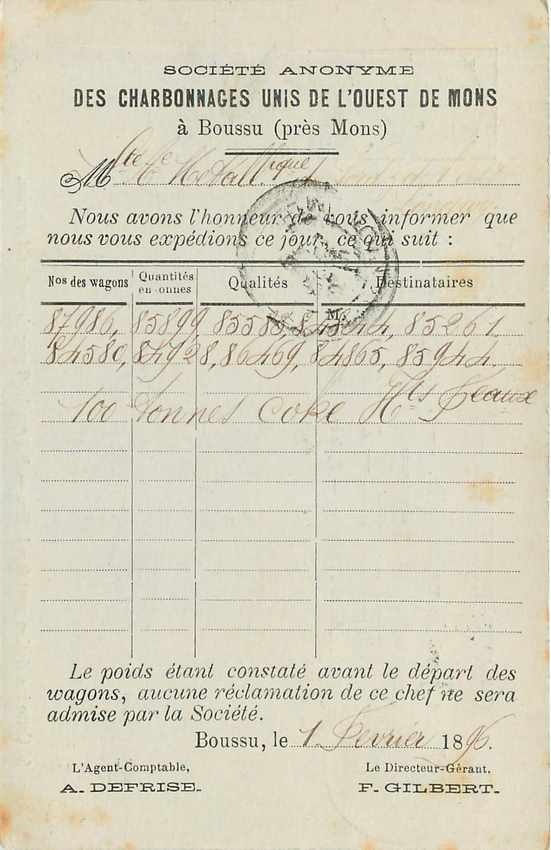 SOCIÉTÉ ANONYME
DES CHARBONNAGES UNIS DE L'OUEST DE MONS
à Boussu (près Mons)
M
Nous avons l'honneur de vous informer que
nous vous expédions ce jour, ce qui suit :
Nos des wagons Quantités en tonnes Qualités Destinataires
87986, 85899 85585, 85261,
84580, 84928, 86469, 84865, 85944,
100 tonnes coke Hts
Le poids étant constaté avant le départ des
wagons, aucune réclamation de ce chef ne sera
admise par la Société.
Boussu, le 1 Fevrier 1896.
L'Agent-Comptable, Le Directeur-Gérant.
A. DEFRISE. F. GILBERT.